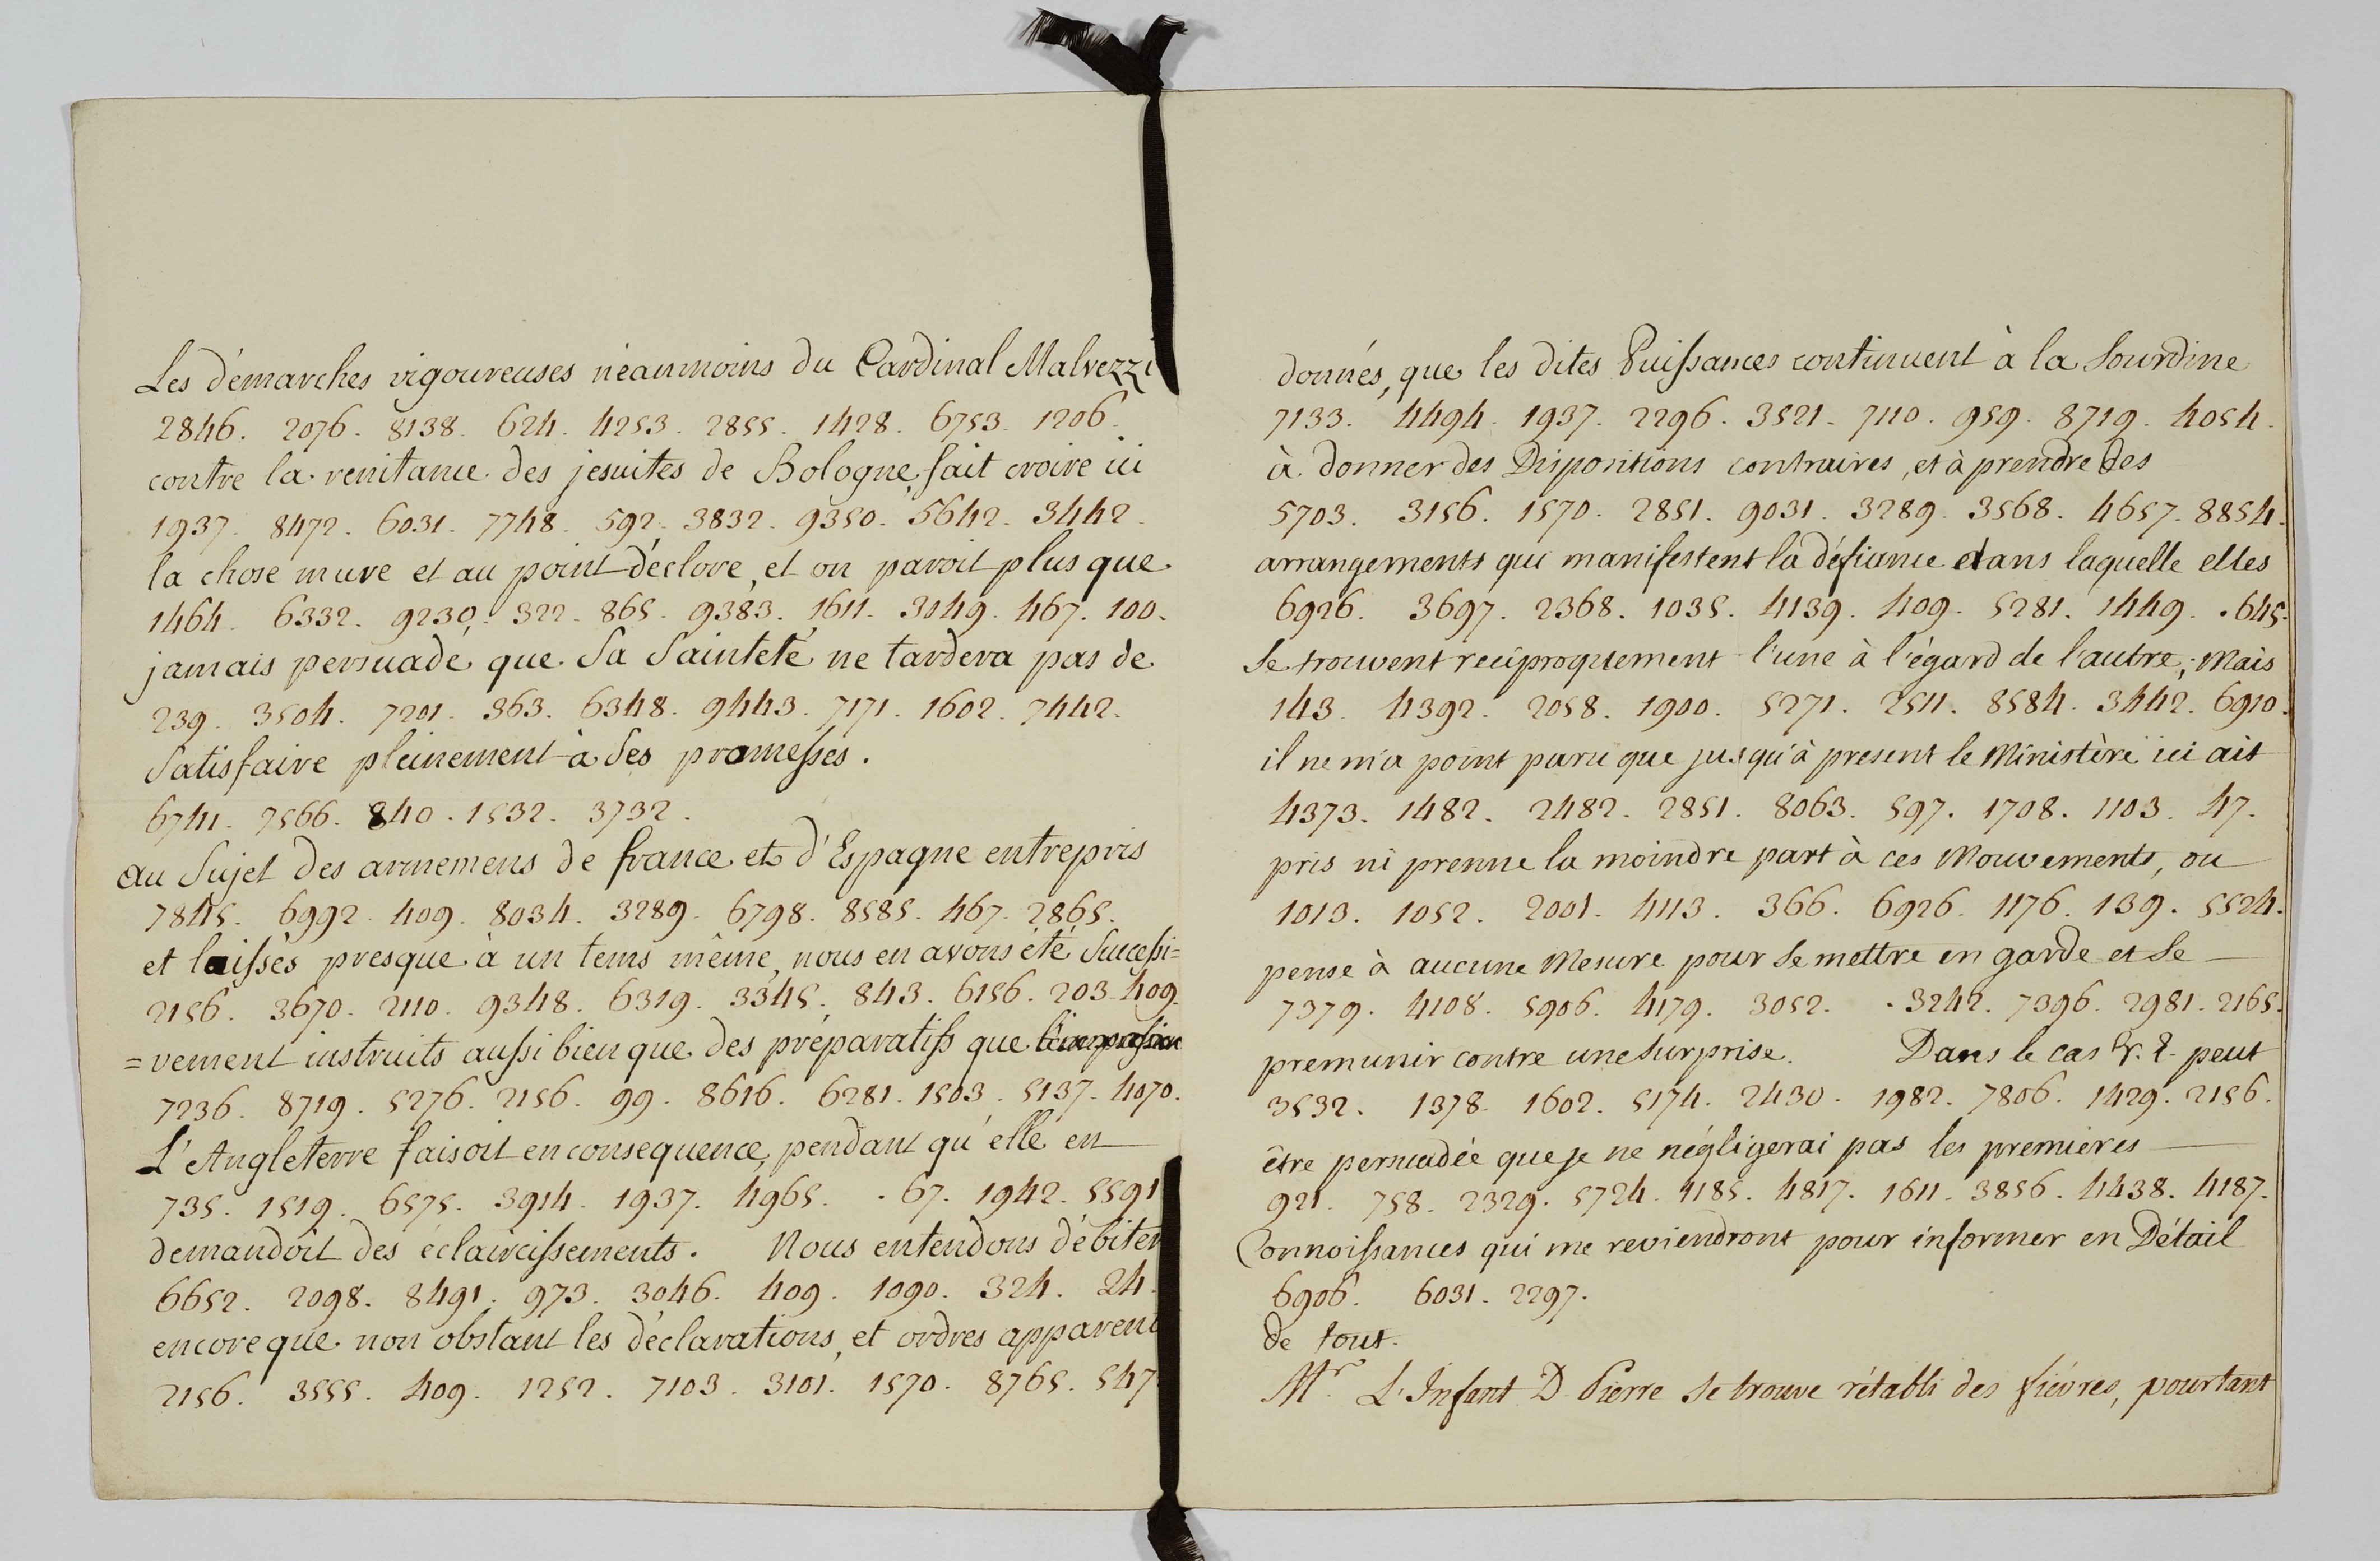 Les démarches vigoureuses néanmoins du Cardinal Malvezzi
2846. 2076. 8138. 624. 4253. 2855. 1428. 6753. 1206.
contre la renitance des jesuites de Bologne, fait croire ici
1937. 8472. 6031. 7748. 592. 3832. 9350. 5642. 3442.
la chose mure et au point d'éclore, et on paroit plus que
1464. 6332. 9230. 322. 865. 9383. 1611. 3049. 467. 100.
jamais persuadé que Sa Sainteté ne tardera pas de
239. 3504. 7201. 363. 6348. 9443. 7171. 1602. 7442.
Satisfaire pleinement à Ses promesses.
6741. 7566. 840. 1532. 3732.
au Sujet des armemens de france et d'Espagne entrepris
7845. 6992. 409. 8034. 3289. 6798. 8585. 467. 2865.
et laissés presque à un tems même, nous en avons été Successi=
2156. 3670. 2110. 9348. 6319. 3345. 843. 6156. 203. 409.
=vement instruits aussi bien que des préparatifs que
7236. 8719. 5276. 2156. 99. 8616. 6281. 1503. 5137. 4070.
L'Angleterre faisoit en consequence, pendant qu'elle en
735. 1519. 6575. 3914. 1937. 4965. . 67. 1942. 5591
demandoit des éclaircissements. Nous entendons débiter
6652. 2098. 8491. 973. 3046. 409. 1090. 324. 24.
encore que non obstant les déclarations, et ordres apparent
2156. 3555. 409. 1252. 7103. 3101. 1570. 8765. 547
donnés, que les dites Puissances continuent à la Sourdine
7133. 4494. 1937. 2296. 3521. 7110. 959. 8719. 4054.
à donner des Dispositions contraires, et à prendre des
5703. 3156. 1570. 2851. 9031. 3289. 3568. 4657. 8854.
arrangements qui manifestent la défiance dans laquelle elles
6926. 3697. 2368. 1035. 4139. 409. 5281. 1449. . 645.
Se trouvent reciproquement l'une à l'égard de l'autre; Mais
143. 4392. 2058. 1900. 5271. 2511. 8584. 3442. 6910.
il ne m'a point paru que jusqu'à present le Ministère ici ait
4373. 1482. 2482. 2851. 8063. 597. 1708. 1103. 47.
pris ni prenne la moindre part à ces Mouvements, ou
1013. 1052. 2001. 4113. 366. 6926. 1176. 139. 5524.
pense à aucune Mesure pour Se mettre en garde et Se
7379. 4108. 5906. 4179. 3052. . 3242. 7396. 2981. 2165.
premunir contre une Surprise. Dans le cas V. E. peut
3532. 1378. 1602. 5174. 2430. 1982. 7806. 1429. 2156.
être persuadée que je ne négligerai pas les premières
921. 758. 2329. 5724. 4185. 4817. 1611. 3856. 4438. 4187.
Connoissances qui me reviendront pour informer en Détail
6906. 6031. 2297.
de tout.
Mr. L'Infant D. Pierre Se trouve rétabli des fièvres, pourtant